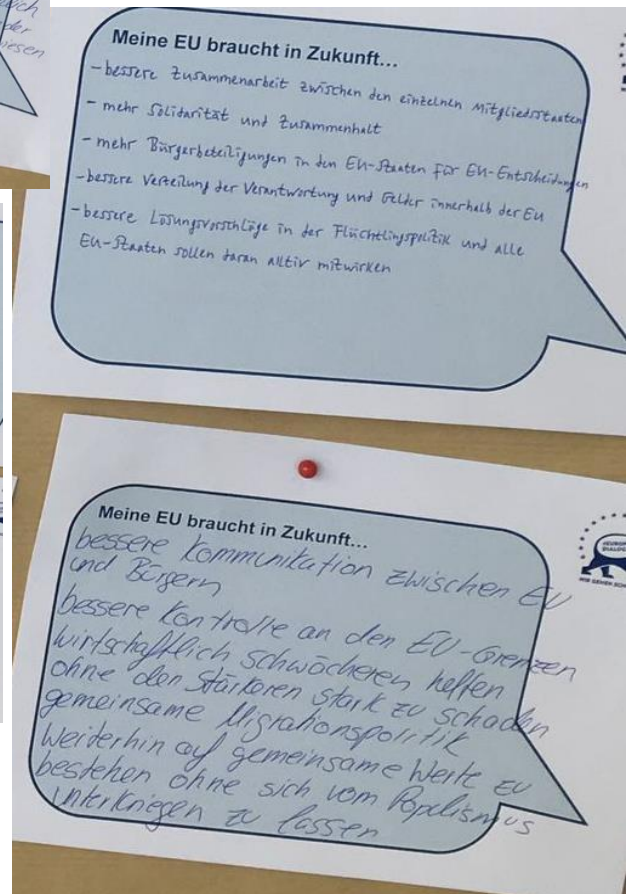 Meine EU braucht in Zukunft...
- bessere Zusammenarbeit zwischen den einzelnen Mitgliedsstaaten
- mehr Solidarität und Zusammenhalt
- mehr Bürgerbeteiligungen in den EU-Staaten für EU-Entscheidungen
- bessere Verteilung der Verantwortung und Gelder innerhalb der EU
- bessere Lösungsvorschläge in der Flüchtlingspolitik und alle
EU-Staaten sollen daran aktiv mitwirken
Meine EU braucht in Zukunft...
bessere Kommunikation zwischen EU
und Bürgern
bessere Kontrolle an den EU-Grenzen
wirtschaftlich schwächeren helfen
ohne den Stärkeren stark zu schaden
gemeinsame Migrationspolitik
Weiterhin auf gemeinsame Werte zu
bestehen ohne sich vom Populismus
unterkriegen zu lassen